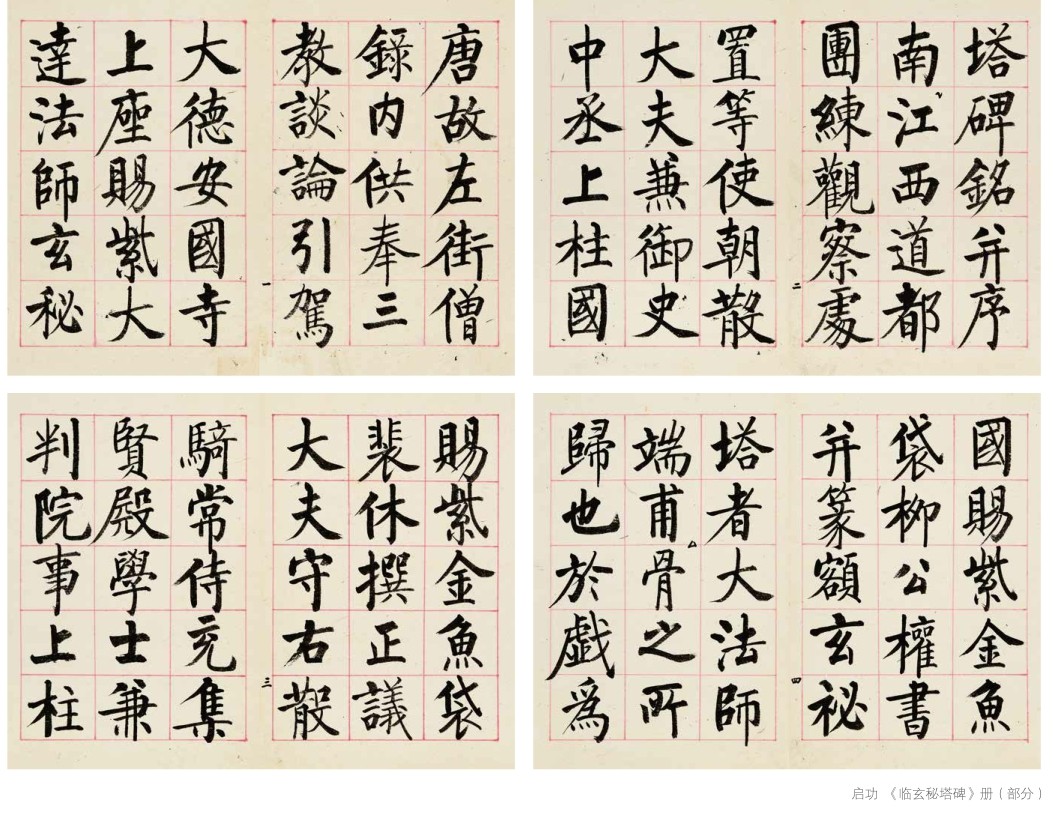 唐故左街僧
錄内供奉三
教談論引駕
一
大德安國寺
上座賜紫大
達法師玄秘
塔碑銘并序
南江西道都
團練觀察處
二
置等使朝散
大夫兼御史
中丞上柱國
賜紫金魚袋
裴休撰正議
大夫守右散
三
騎常侍充集
賢殿學士兼
判院事上柱
國賜紫金魚
袋柳公權書
并篆額玄秘
四
塔者大法師
端甫骨之所
歸也於戲爲
启功 《临玄秘塔碑》册（部分）